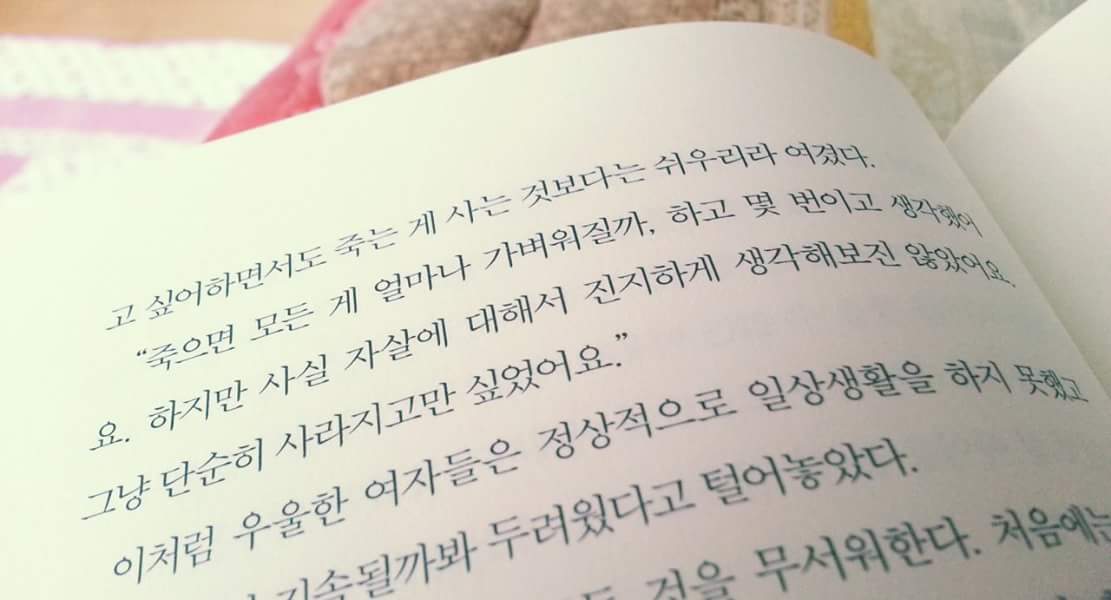 고 싶어하면서도 죽는 게 사는 것보다는 쉬우리라 여겼다.
“죽으면 모든 게 얼마나 가벼워질까, 하고 몇 번이고 생각했어
요. 하지만 사실 자살에 대해서 진지하게 생각해보진 않았어요.
그냥 단순히 사라지고만 싶었어요.”
이처럼 우울한 여자들은 정상적으로 일상생활을 하지 못했고
지속될까봐 두려웠다고 털어놓았다.
것을 무서워한다. 처음에는